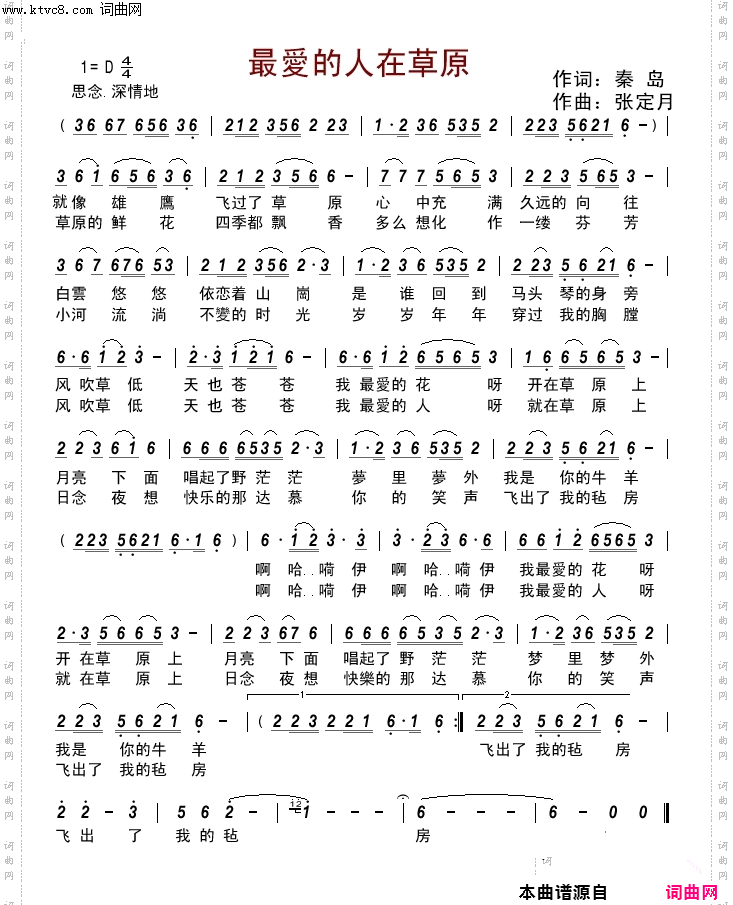 www.ktvc8.com 词曲网
最愛的人在草原
1=D 4/4
思念.深情地
作词: 秦 岛
作曲: 张定月
( 3 6 6 7 6 5 6 3 6 | 2 1 2 3 5 6 2 2 3 | 1 · 2 3 6 5 3 5 2 | 2 2 3 5 6 2 1 6 - )
3 6 1 6 5 6 3 6 | 2 1 2 3 5 6 6 - | 7 7 7 5 6 5 3 | 2 2 3 5 6 5 3 - |
就像 雄 鹰 飞过了 草 原 心 中充 满 久远的 向 往
草原的 鲜 花 四季都 飘 香 多么 想化 作 一缕 芬 芳
3 6 7 6 7 6 5 3 | 2 1 2 3 5 6 2 · 3 | 1 · 2 3 6 5 3 5 2 | 2 2 3 5 6 2 1 6 - |
白雲 悠 悠 依恋着 山 崗 是 谁 回 到 马头 琴的身 旁
小河 流 淌 不變的 时 光 岁 岁 年 年 穿过 我的胸 膛
6 · 6 1 2 3 - | 2 · 3 1 2 1 6 - | 6 · 6 1 2 6 5 6 5 3 | 1 6 6 5 6 5 3 - |
风 吹草 低 天 也 苍 苍 我 最愛的 花 呀 开在草 原 上
风 吹草 低 天 也 苍 苍 我 最愛的 人 呀 就在草 原 上
2 2 3 6 1 6 | 6 6 6 6 5 3 5 2 · 3 | 1 · 2 3 6 5 3 5 2 | 2 2 3 5 6 2 1 6 - |
月亮 下 面 唱起了野 茫 茫 夢 里 夢 外 我是 你的牛 羊
日念 夜 想 快乐的那 达 慕 你 的 笑 声 飞出了 我的毡 房
( 2 2 3 5 6 2 1 6 · 1 6 ) | 6 · 1 2 3 · 3 | 3 · 2 3 6 · 6 | 6 6 1 2 6 5 6 5 3 |
啊 哈..嗬 伊 啊 哈..嗬伊 我最愛的 花 呀
啊 哈..嗬 伊 啊 哈..嗬伊 我最愛的 人 呀
2 · 3 5 6 6 5 3 - | 2 2 3 6 7 6 | 6 6 6 6 5 3 5 2 · 3 | 1 · 2 3 6 5 3 5 2 |
开 在草 原 上 月亮 下 面 唱起了 野 茫 茫 梦 里 梦 外
就 在草 原 上 日念 夜 想 快樂的 那 达 慕 你 的 笑 声
1 2
2 2 3 5 6 2 1 6 - | ( 2 2 3 2 2 1 6 · 1 6 :| 2 2 3 5 6 2 1 6 - |
我是 你的牛 羊 飞出了 我的毡 房
飞出了 我的毡 房
2 2 - 3 | 5 6 2 - | 12 1 - - - | 6 - - - | 6 - 0 0 ‖
飞 出 了 我 的 毡 房
词曲网
本曲谱源自 词曲网